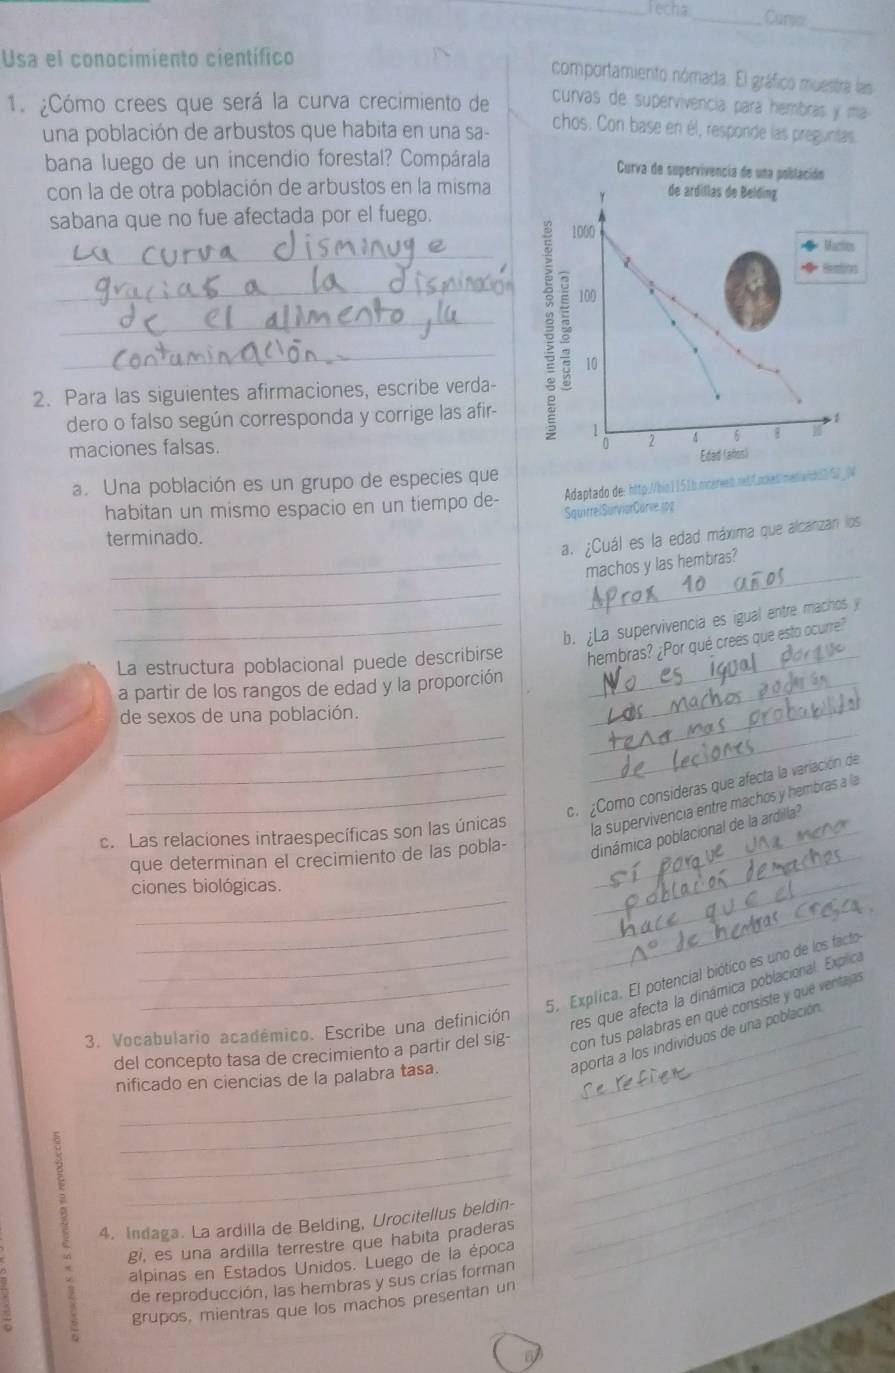 Fecha Curso:
Usa el conocimiento científico
1. ¿Cómo crees que será la curva crecimiento de
una población de arbustos que habita en una sa-
bana luego de un incendio forestal? Compárala
con la de otra población de arbustos en la misma
sabana que no fue afectada por el fuego.
La curva disminuye
gracias a la disminoción
de el alimento, la
contaminación.
2. Para las siguientes afirmaciones, escribe verda-
dero o falso según corresponda y corrige las afir-
maciones falsas.
a. Una población es un grupo de especies que
habitan un mismo espacio en un tiempo de-
terminado.
La estructura poblacional puede describirse
a partir de los rangos de edad y la proporción
de sexos de una población.
c. Las relaciones intraespecíficas son las únicas
que determinan el crecimiento de las pobla-
ciones biológicas.
3. Vocabulario académico. Escribe una definición
del concepto tasa de crecimiento a partir del sig-
nificado en ciencias de la palabra tasa.
4. Indaga. La ardilla de Belding, Urocitellus beldin-
gi, es una ardilla terrestre que habita praderas
alpinas en Estados Unidos. Luego de la época
de reproducción, las hembras y sus crías forman
grupos, mientras que los machos presentan un
comportamiento nómada. El gráfico muestra las
curvas de supervivencia para hembras y ma-
chos. Con base en él, responde las preguntas.
Curva de supervivencia de una población
de ardillas de Belding
Y
1000
100
10
1
0 2 4 6 8 10
Numero de individuos sobrevivientes
(escala logarítmica)
Machos
Hembras
Edad (años)
Adaptado de:
SquirrelSurvivorCurve.jpg
a. ¿Cuál es la edad máxima que alcanzan los
machos y las hembras?
Aprox 10 años
b. ¿La supervivencia es igual entre machos y
hembras? ¿Por qué crees que esto ocurre?
No es igual porque
Los machos podrian
tener mas probabilidad
de leciones
c. ¿Como consideras que afecta la variación de
la supervivencia entre machos y hembras a la
dinámica poblacional de la ardilla?
sí porque una menor
poblacion de machos
hace que el
n° de hembras cresca.
5. Explica. El potencial biótico es uno de los facto-
res que afecta la dinámica poblacional. Explica
con tus palabras en qué consiste y qué ventajas
aporta a los individuos de una población.
se refiere
Prohibida su reproducción